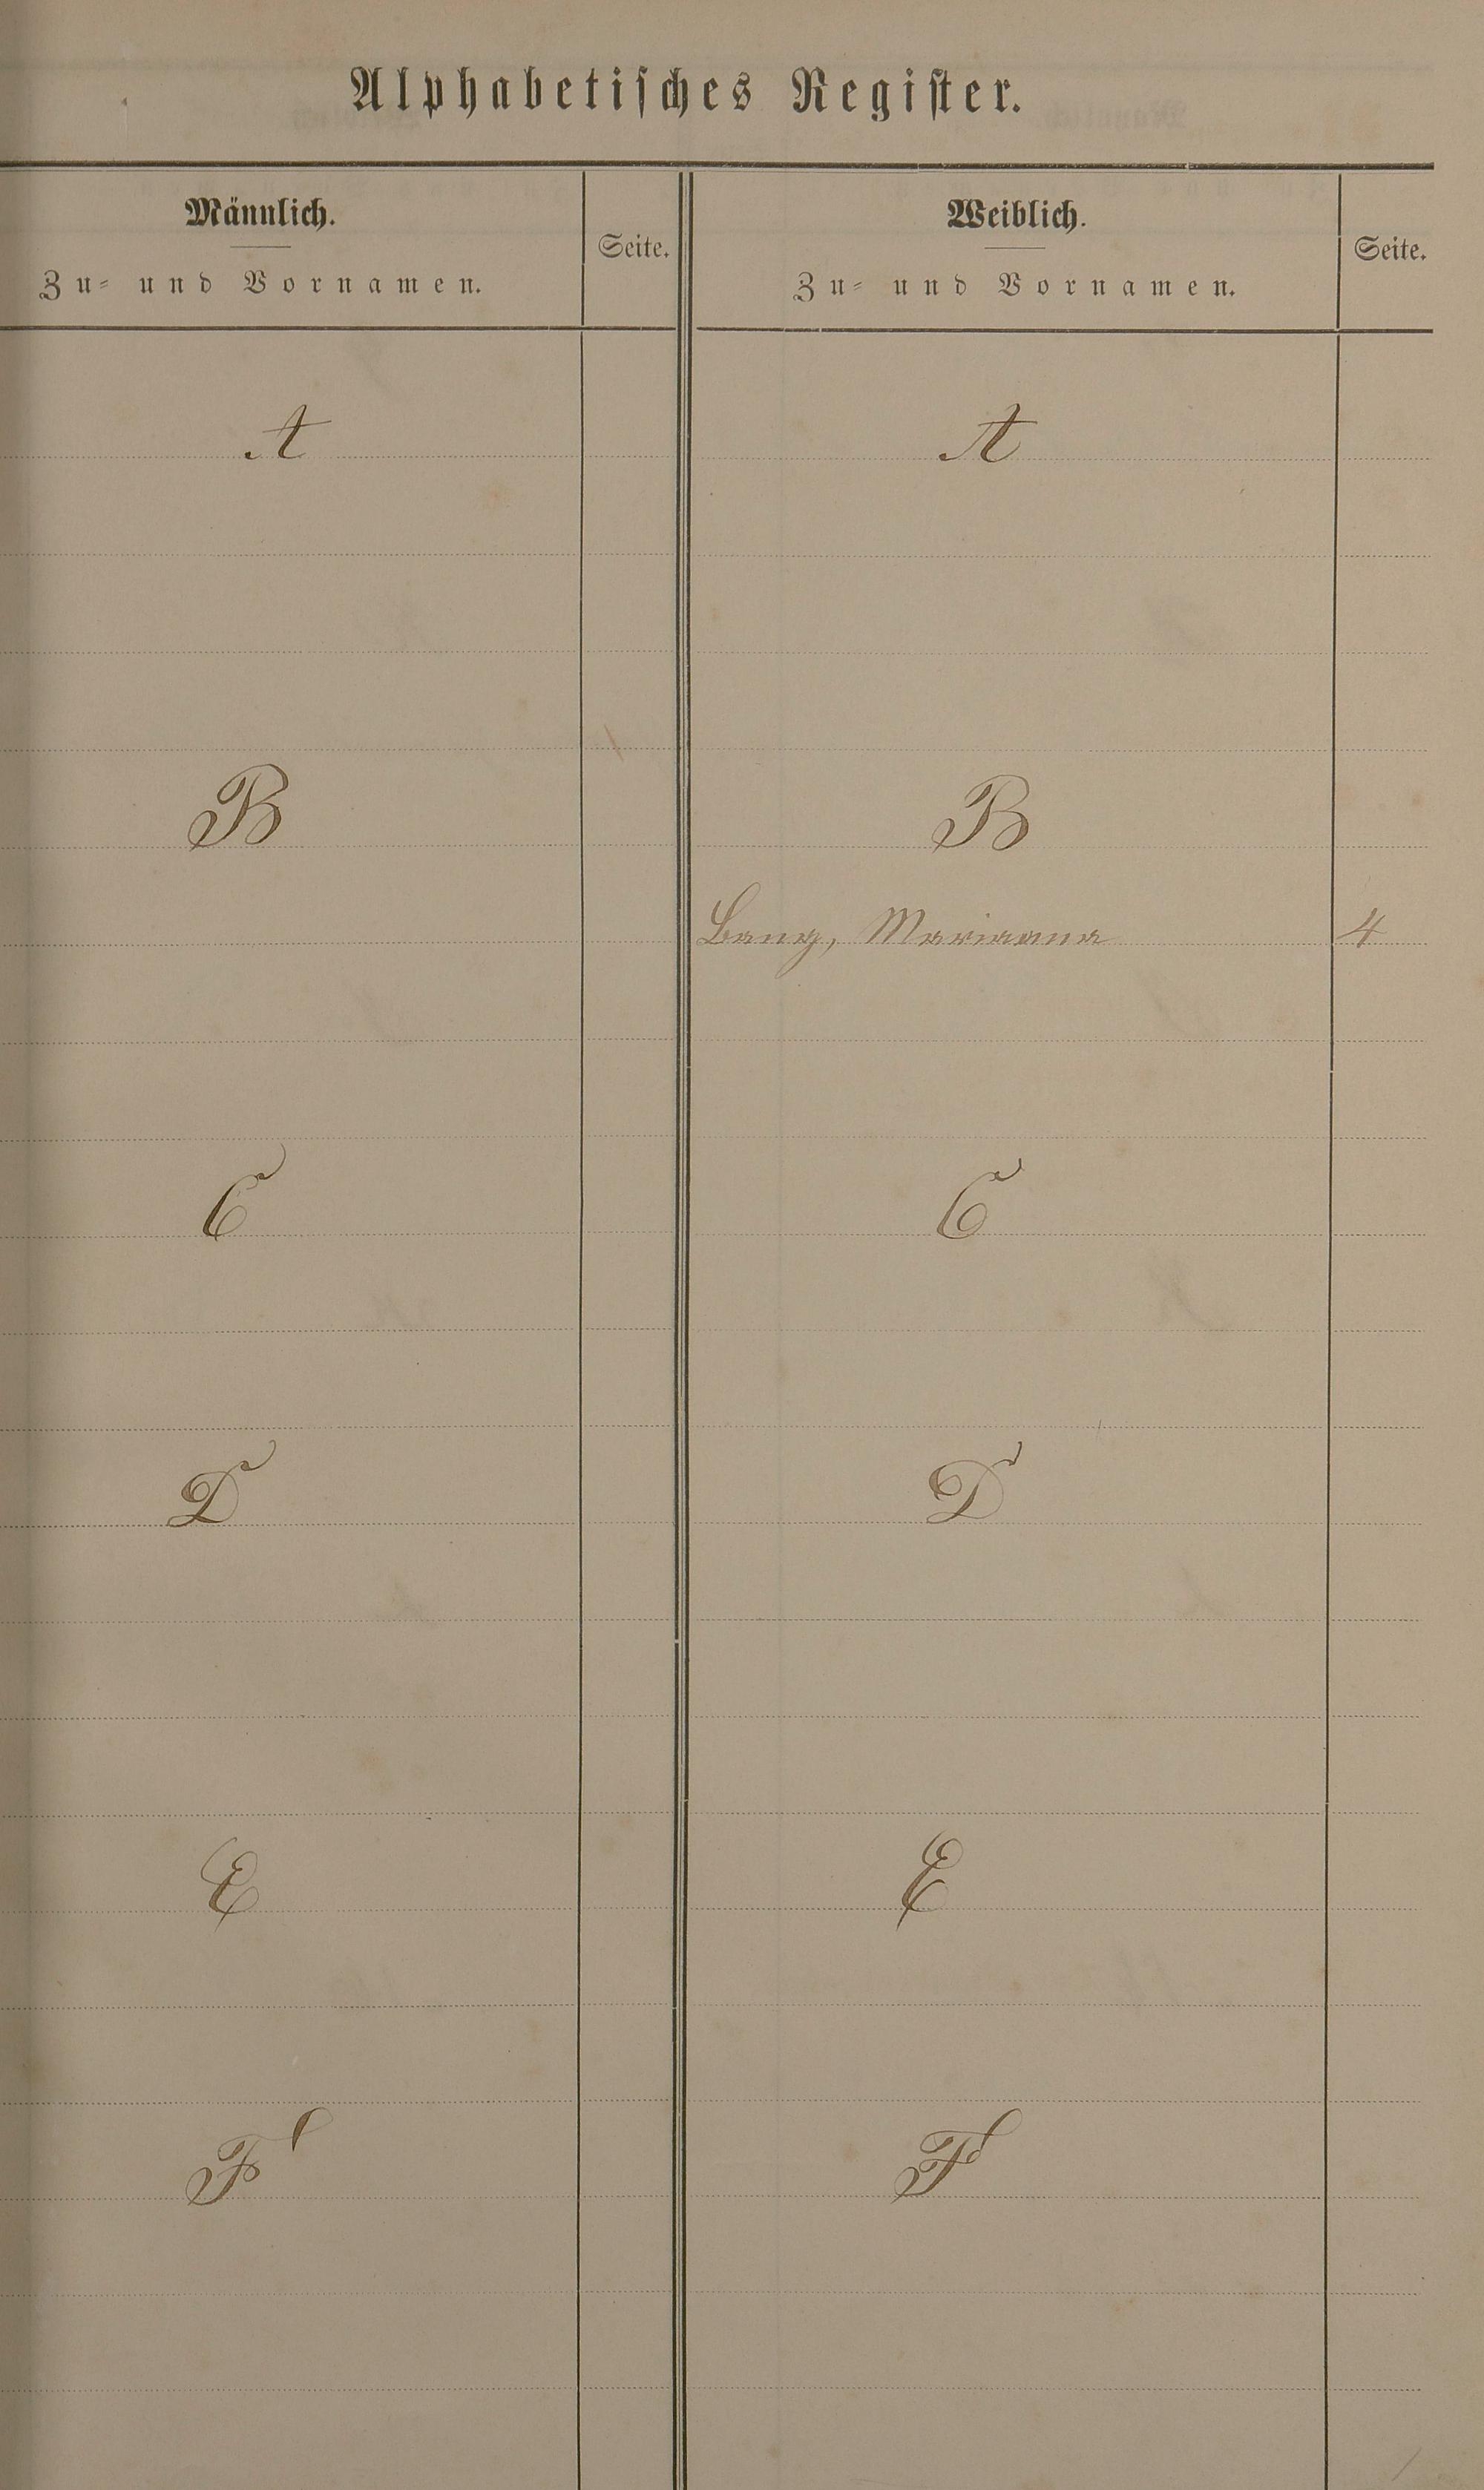 Alphabetisches Register.
Männlich. Weiblich.
Seite. Seite.
Zu- und Vornamen. Zu- und Vornamen.
A A
B B
Bang, Marianna 4
C C
D D
E E
F F